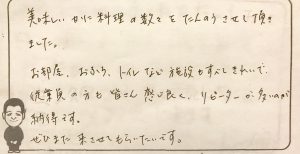 美味しいかに料理の数々をたんのうさせて頂き
ました。
お部屋、おふろ、トイレなど施設もすべてきれいで、
従業員の方も皆さん感じ良く、リピーターが多いのが
納得です。
ぜひまた来させてもらいたいです。